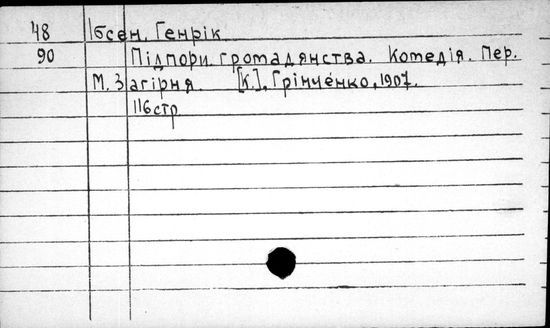 48 Ібсен, Генрік
90 Підпори громадянства. Комедія. Пер.
М. Загірня. [К.], Грінченко, 1907.
116стр